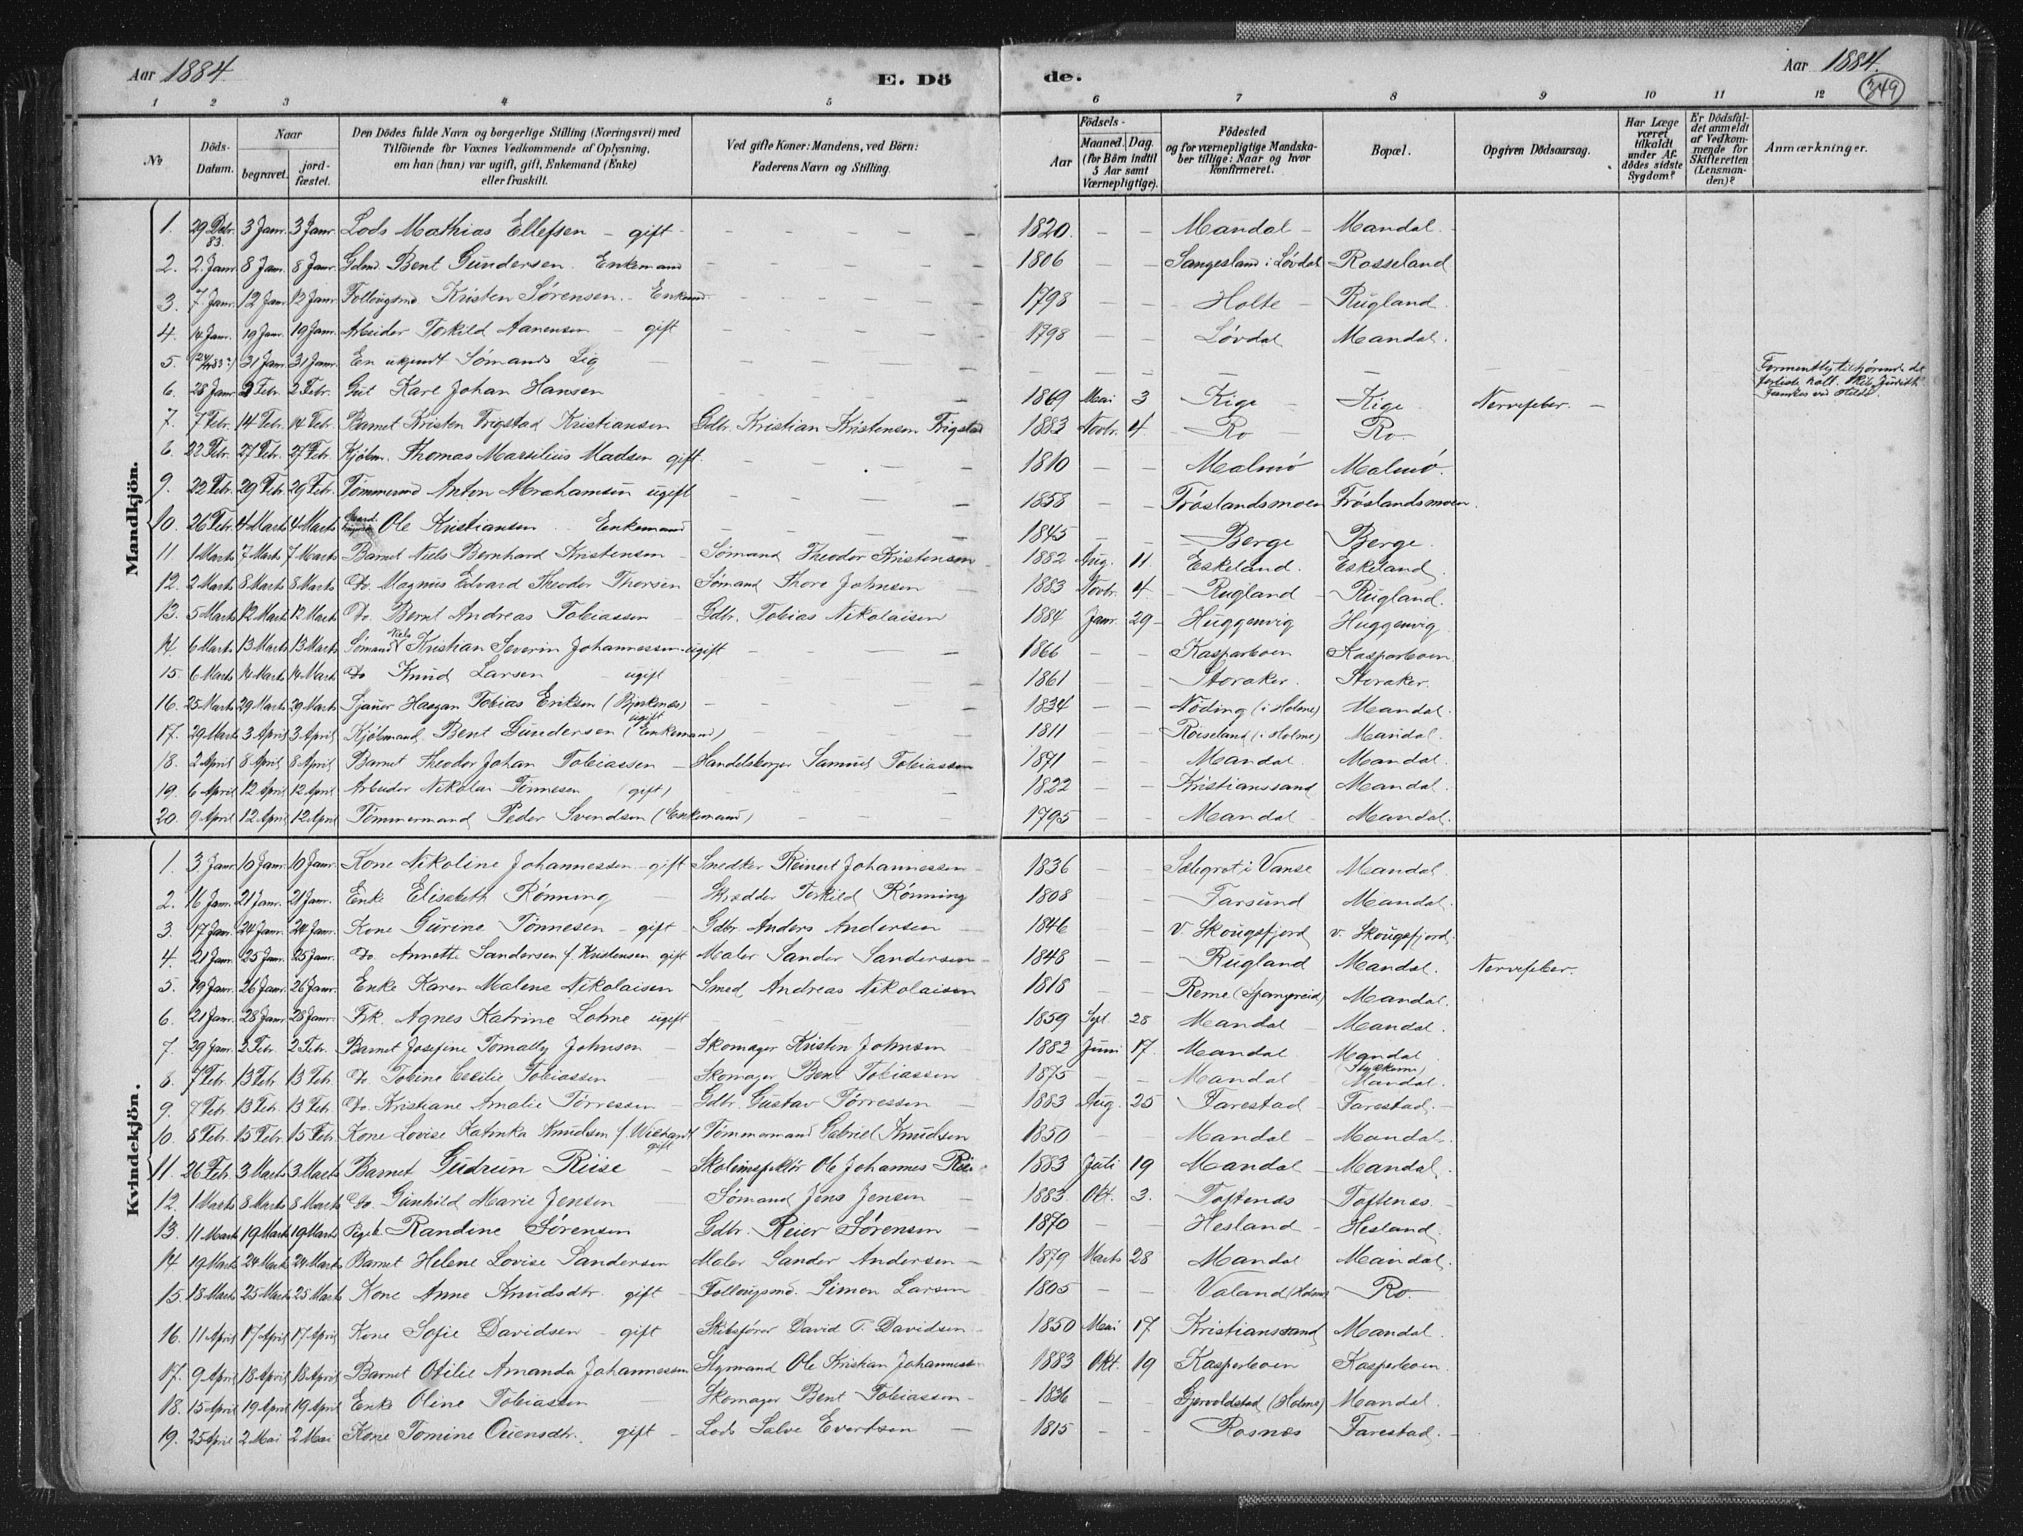 Aar 1884.
E. Dö
de.
Aar 1884.
349
1 2 3 4 5 6 7 8 9 10 11 12
No
Döds-Datum.
Naar
begravet.
jord-fæstet.
Den Dödes fulde Navn og borgerlige Stilling (Næringsvei) med
Tilföiende for Voxnes Vedkommende af Oplysning,
om han (hun) var ugift, gift, Enkemand (Enke)
eller fraskilt.
Ved gifte Koner: Mandens, ved Börn:
Faderens Navn og Stilling.
Födsels-
Aar
Maaned. Dag.
(for Börn indtil
5 Aar samt
Værnepligtige).
Födested
og for værnepligtige Mandska-
ber tillige: Naar og hvor
konfirmeret.
Bopæl.
Opgiven Dödsaarsag.
Har Læge
været
tilkaldt
under Af-
dödes sidste
Sygdom?
Er Dödsfal-
det anmeldt
af Vedkom-
mende for
Skifteretten
(Lensman-
den)?
Anmærkninger.
Mandkjön.
1. 29 Debr. 83. 3 Janr. 3 Janr. Lods Mathias Ellefsen – gift – – – – 1820. – – Mandal – Mandal.
2. 2 Janr. 8 Janr. 8 Janr. Gdmd. Bent Gundersen. Enkemand – – – – 1806 – – Sangesland i Løvdal Rosseland
3. 7 Janr. 12 Janr. 12 Janr. Kristen Sørensen. – – – – 1798 – – Holte – Rugland.
4. 14 Janr. 19 Janr. 19 Janr. Arbeider Torkild Aanensen – gift – – – – 1798 – – Løvdal Mandal.
5. 31 Janr. 31 Janr. En ukjendt Sømands Lig – – – –
6. 28 Janr. 2 Febr. 2 Febr. Gut Karl Johan Hansen – 1869 Mai 3 Kige – Kige Nervefeber. –
7. 7 Febr. 14 Febr. 14 Febr. Barnet Kristen Trigstad Kristiansen Gdbr. Kristian Kristensen Trigstad 1883 Novbr. 4 Ro Ro –
8. 22 Febr. 27 Febr. 27 Febr. Kjøbm. Thomas Marselius Madsen gift. – – – 1810 – – Malmø Malmø.
9. 22 Febr. 29 Febr. 29 Febr. Tømmermd Anton Abrahamsen ugift – – – 1858 – – Frøslandsmoen Frøslandsmoen.
10. 26 Febr. 4 Marts 4 Marts Ole Kristiansen. Enkemand – – – 1845 – – Berge Berge.
11 1 Marts 7 Marts 7 Marts Barnet Niels Bernhard Kristensen – Sømand Theodor Kristensen 1882 Aug. 11. Eskeland. Eskeland.
12. 2 Marts 8 Marts 8 Marts Do. Magnus Edvard Theodor Thorsen Sømand Thore Johnsen – 1883 Novbr. 4 Rugland – Rugland.
13. 5 Marts 12 Marts 12 Marts Do. Bernt Andreas Tobiassen – Gdbr. Tobias Nikolaisen 1884 Janr. 29 – Huggenvig Huggenvig
14 6 Marts 13 Marts 13 Marts Sømand Niels Kristian Severin Johannessen – ugift – – – 1866 – – Kasparboen Kasparboen.
15. 6 Marts 14 Marts 14 Marts Do Knud Larsen – ugift – – – – 1861 – – Storaker. Storaker.
16. 25 Marts 29 Marts 29 Marts Sjauer Haagan Tobias Eriksen (Bjerkenæs) ugift – – – – 1834 – – Nøding (i Holme) Mandal.
17. 29 Marts 3 April 3 April Kjøbmand. Bent Gundersen (Enkemand) – – – 1811 – – Røiseland (i Holme) Mandal.
18. 2 April 8 April 8 April Barnet Theodor Johan Tobiassen – Handelsborger Samuel Tobiassen 1871 – – Mandal. Mandal.
19. 6 April 12 April 12 April Arbeider Nikolai Tønnesen (gift) – – – 1822 – – Kristianssand Mandal.
20. 9 April 12 April 12 April Tømmermand Peder Svendsen (Enkemand) – – – 1795 – – Mandal – Mandal.
Formentlig tilhørende det
forliste holl. Skib Judith
Kvindekjön.
1. 3 Janr. 10 Janr. 10 Janr. Kone Nikoline Johannessen – gift Snedker Reinert Johannessen – 1836 – – i Vanse Mandal.
2. 16 Janr. 21 Janr. 21 Janr. Enke Elisabeth Rønning – Skrædder Torkild Rønning 1808 – – Farsund Mandal.
3. 17 Janr. 24 Janr. 24 Janr. Kone Gurine Tønnesen – gift – Gdbr. Anders Andersen 1846 – v. Skougsfjord v. Skougsfjord.
4. 21 Janr. 25 Janr. 25 Janr. Do. Annette Sandersen f. Kristensen gift Maler Sander Sandersen – 1848 – – Rugland Mandal. Nervefeber.
5. 19 Janr. 26 Janr. 26 Janr. Enke Karen Malene Nikolaisen Smed Andreas Nikolaisen 1818 – – Reme (Spangereid) Mandal.
6. 21 Janr. 28 Janr. 28 Janr. Frk. Agnes Katrine Lohne ugift – – – 1859 Sept. 28 Mandal – Mandal.
7. 29 Janr. 2 Febr. 2 Febr. Barnet Josefine Tomally Johnson – Skomager Kristen Johnsen 1882 Juni 17. Mandal Mandal
8. 7 Febr. 13 Febr. 13 Febr. Do Tobine Cecilie Tobiassen – Skomager Bent Tobiassen – 1875 – – Mandal – Mandal.
9. 7 Febr. 13 Febr. 13 Febr. Do. Kristiane Amalie Tørressen – Gdbr. Gustav Tørressen – 1883 Aug. 25 Farestad – Farestad. –
10. 8 Febr. 15 Febr. 15 Febr. Kone Lovise Katinka Knudsen f. gift Tømmermand Gabriel Knudsen 1850 – – Mandal – Mandal.
11. 26 Febr. 3 Marts 3 Marts Barnet Gudrun Riise – Skoleinspektør Ole Johannes Riise 1883 Juli 19 Mandal – Mandal.
12. 1 Marts 8 Marts 8 Marts Do. Gunhild Marie Jensen – Sømand Jens Jensen – 1883. Okt. 3. Toftenæs Toftenæs. –
13. 11 Marts 19 Marts 19 Marts Pigeb. Randine Sørensen Gdbr. Reier Sørensen – 1870 – – Hesland – Hesland.
14 19 Marts 24 Marts 24 Marts Barnet Helene Lovise Sandersen Maler Sander Andersen – 1879 Marts 28 Mandal Mandal.
15. 18 Marts 25 Marts 25 Marts Kone Anne Knudsdtr. gift – Simon Larsen 1805 – – Valand (Holme) Ro. –
16. 11 April 17 April 17 April Kone Sofie Davidsen – gift Skibsfører David T. Davidsen – 1850 Mai 17 Kristianssand Mandal.
17. 9 April 18 April 18 April Barnet Otilie Amanda Johannessen Styrmand Ole Kristian Johannessen 1883 Okt. 19 Kasparboen Kasparboen.
18. 15 April 19 April 19 April Enke Oline Tobiassen – Skomager Bent Tobiassen – 1836 – – Gjervoldstad (Holme) Mandal.
19. 25 April 2 Mai 2 Mai Kone Tomine Ouensdtr. gift – Lods Salve Evertsen – 1815 – – Rosnæs Farestad. –